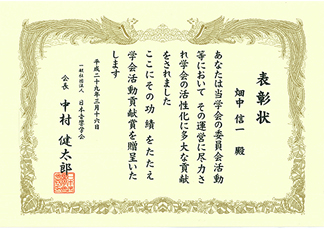 表彰状
畑中 信一 殿
あなたは当学会の委員会活動
等において その運営に尽力さ
れ学会の活性化に多大な貢献
をされました
ここにその功績をたたえ
学会活動貢献賞を贈呈いた
します
平成二十九年三月十六日
一般社団法人 日本音響学会
会長 中村 健太郎